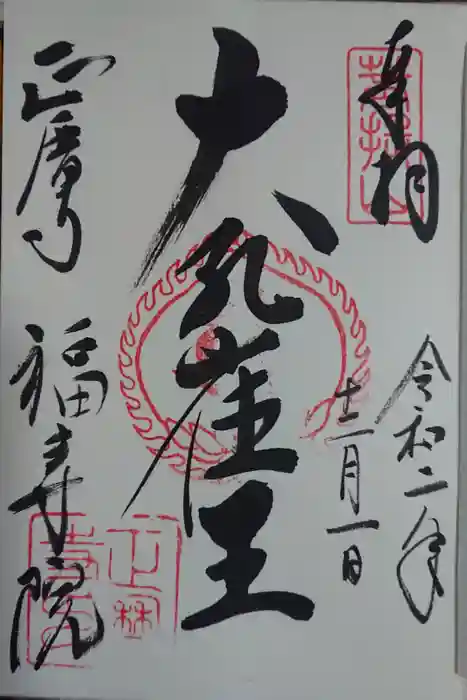 奉拝
令和二年
十二月一日
大孔雀王
正暦寺
福寿院